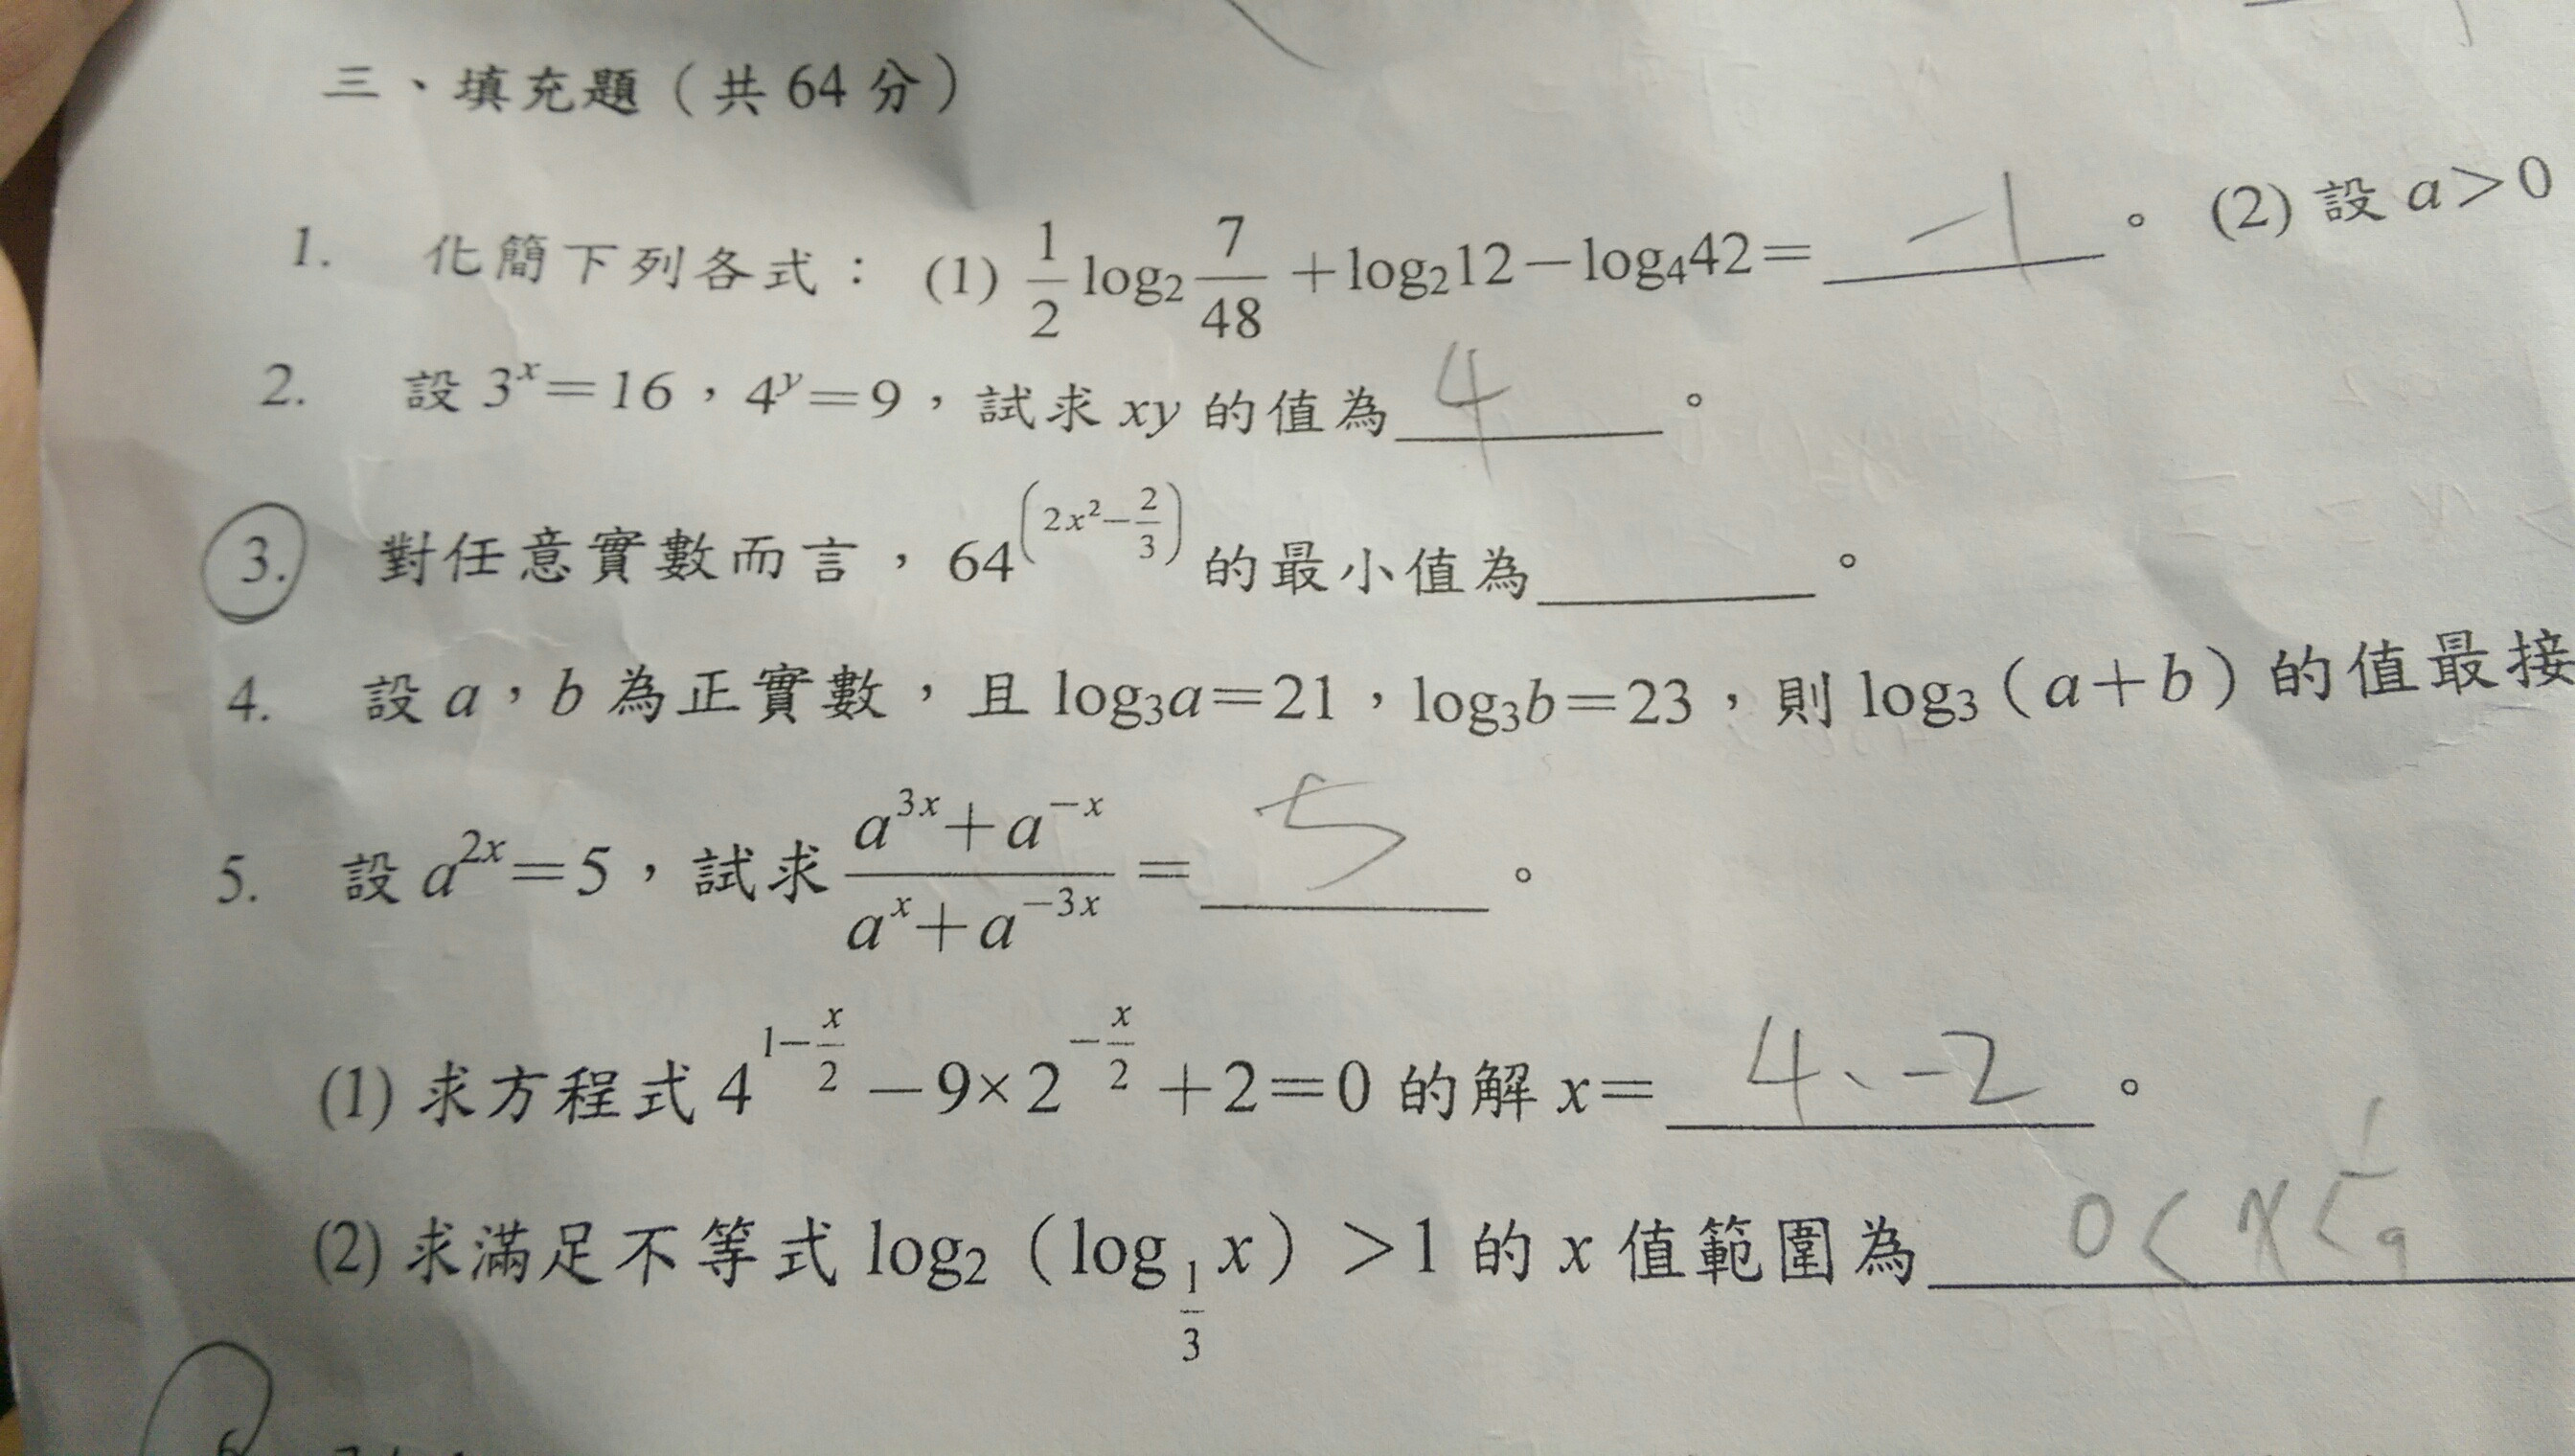 三、填充題（共 64 分）
1. 化簡下列各式：(1) \frac{1}{2}log₂\frac{7}{48}+log₂12−log₄42= −1 。(2) 設 a＞0
2. 設 3^x=16，4^y=9，試求 xy 的值為 4 。
3. 對任意實數而言，64^{(2x²−\frac{2}{3})} 的最小值為＿＿＿＿。
4. 設 a，b 為正實數，且 log₃a=21，log₃b=23，則 log₃（a+b）的值最接
5. 設 a^{2x}=5，試求 \frac{a^{3x}+a^{−x}}{a^x+a^{−3x}} = 5 。
(1) 求方程式 4^{1−\frac{x}{2}}−9×2^{−\frac{x}{2}}+2=0 的解 x= 4、−2 。
(2) 求滿足不等式 log₂（log_{\frac{1}{3}}x）＞1 的 x 值範圍為 0<x<\frac{1}{9}
6